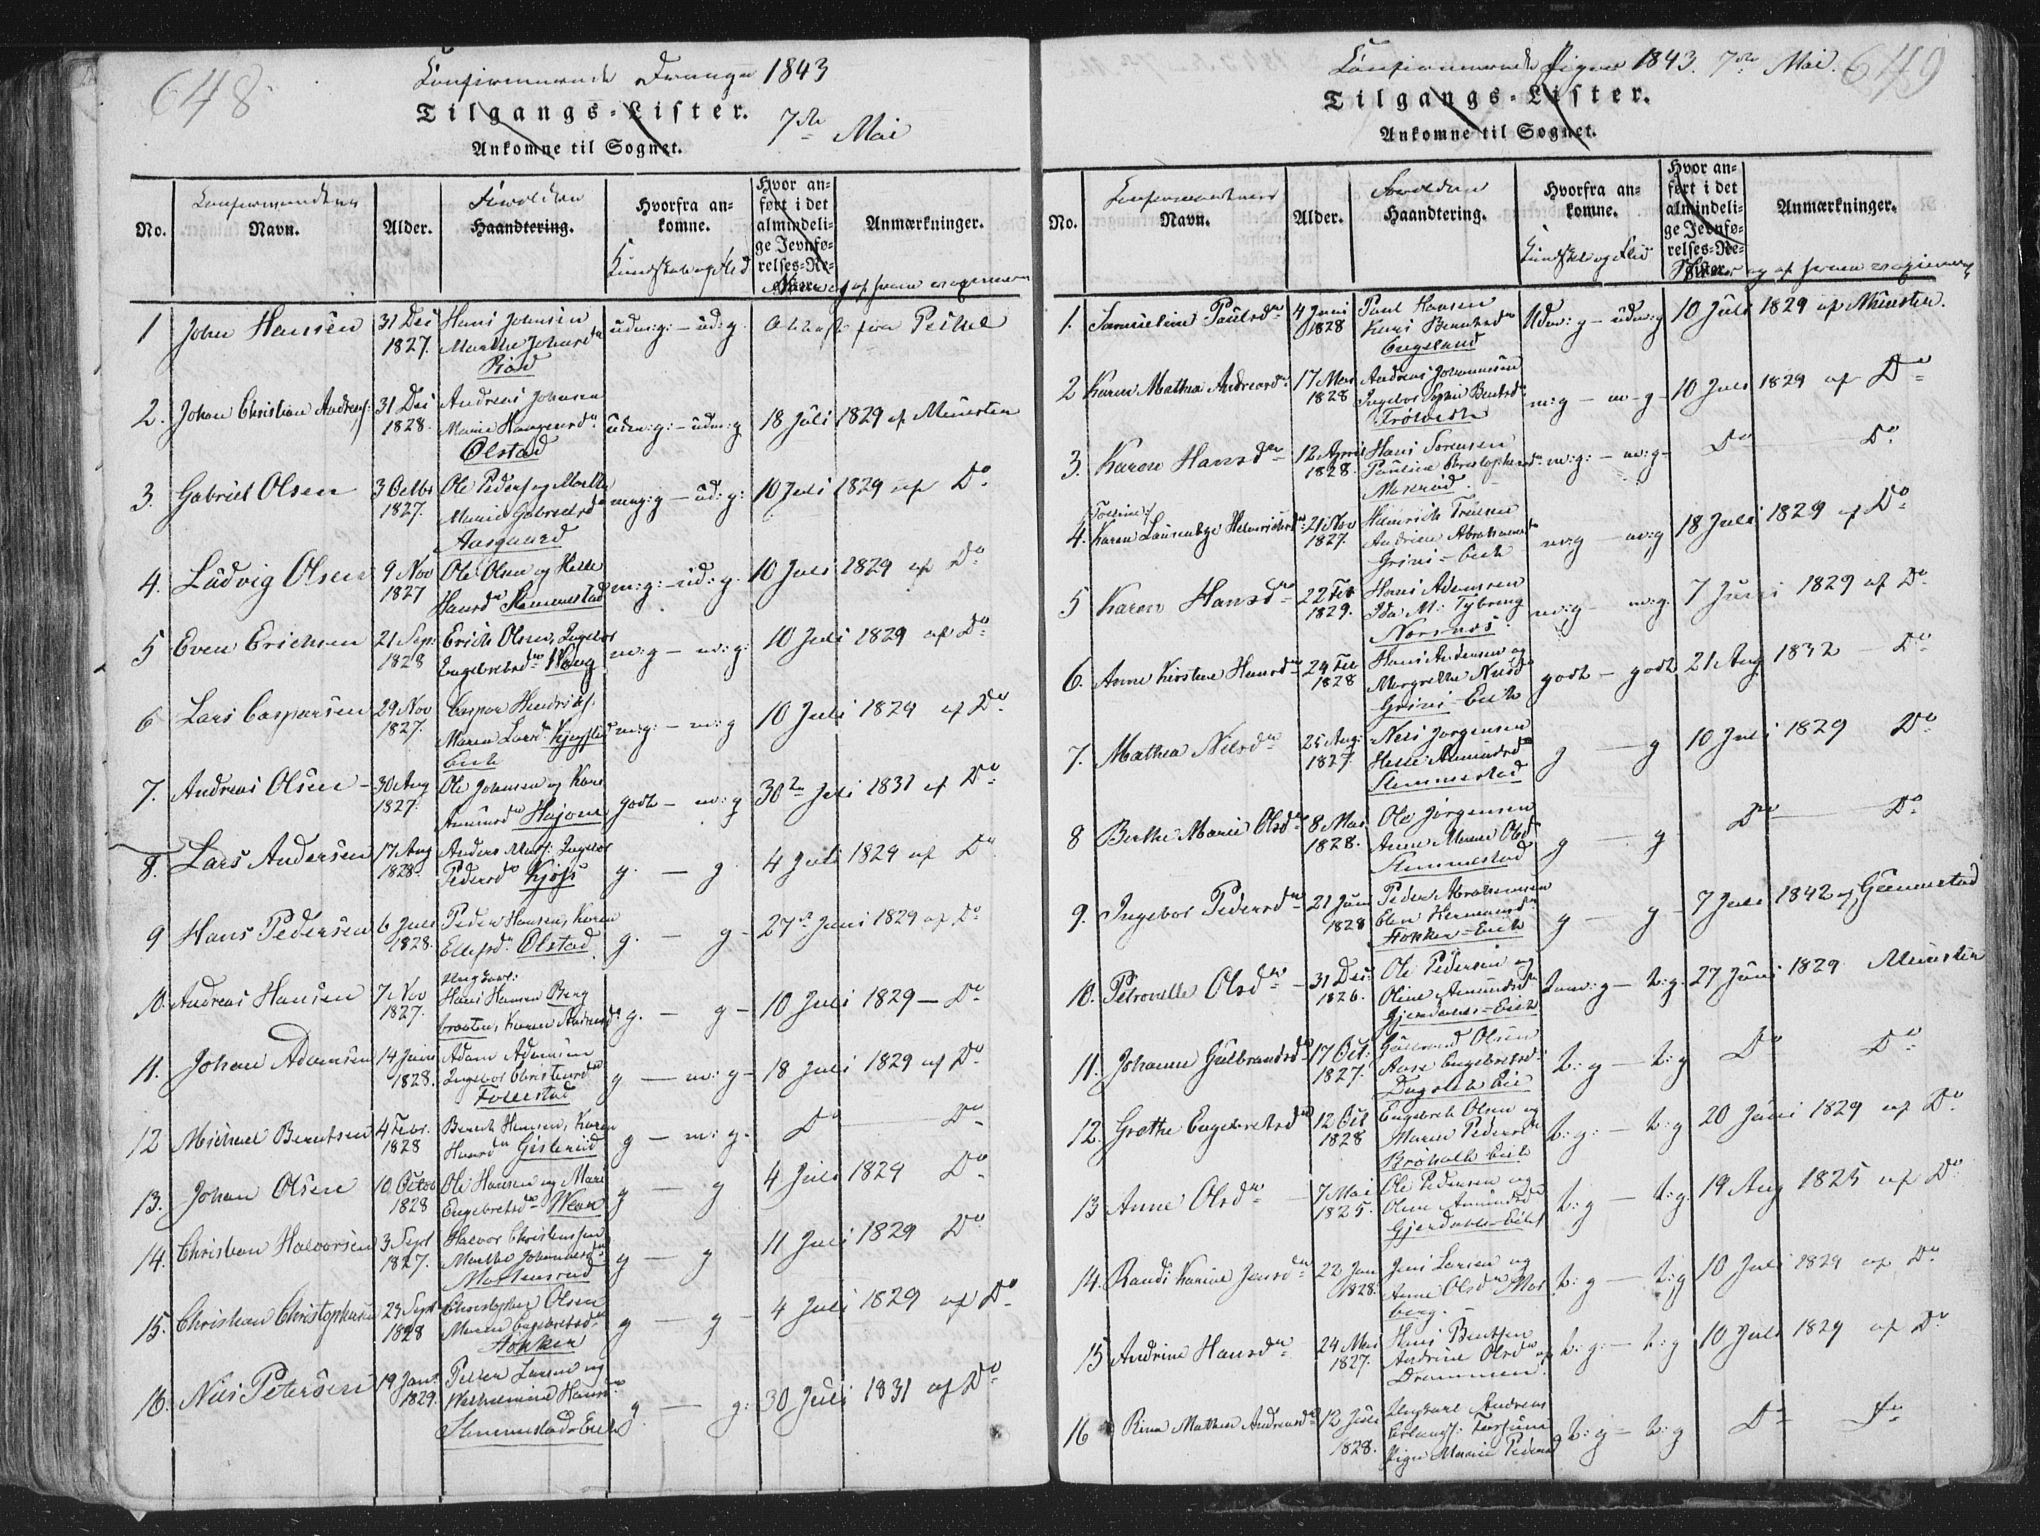 648
Confirmerede Drenge 1843
Tilgangs-Lister.
7de Mai
Ankomne til Sognet.
No.
Confirmandens
Navn.
Alder.
Forældre
Haandtering.
Hvorfra an-
komne.
Kundskab og Flid
Hvor an-
ført i det
almindeli-
ge Jevnfø-
relses-Re-
Anmærkninger.
naar og af hvem vaccineret
1 John Hansen 31 Dec 1827. Hans Johnsen Marthe Johnsdn Röed udm:g: - ud:g. Attest fra Peikel
2. Johan Christian Andreas: 31 Dec 1828. Andreas Johnsen Marie Haagensdn Ølstad udm:g: - udm:g 18 Juli 1829 af Münster
3. Gabriel Olsen 3 Octbr 1827. Ole Peders og Marthe Marie Gabrielsdn Aasgaard m:g - ud:g: 10 Juli 1829 af Do
4. Ludvig Olsen 9 Nov 1827 Ole Olsen og Helle Hansdn Slemmestad m:g: - ud:g. 10 Juli 1829 af Do
5 Even Erichsen 21 Sep: 1828 Erich Olsen, Ingebor Engebretsdn Haug m:g - m:g: 10 Juli 1829 af Do
6 Lars Caspersen 29 Nov 1827. Casper Hendrichs: Maren Larsdn Eich m:g: - m:g 10 Juli 1829 af Do
7. Andreas Olsen 30 Aug 1827. Ole Johnsen og Kari Amundsdn Højom godt - m:g 30te Juli 1831 af Do
8. Lars Andersen 17 Aug 1828. Anders Ingebor Pedersdn Kjøs g. - g. 4 Juli 1829 af Do
9 Hans Pedersen 6 Juli 1828. Peder Hansen, Karen Ellefsdn Ølstad. g. - g - 27de Juni 1829 af Do
10. Andreas Hansen 7 Nov 1827. Ungkarl: Hans Hansen Berg braaten, Karen Andersdn g. - g - 10 Juli 1829 - Do
11. Johan Adamsen 14 Juni 1828. Adam Adamsen Ingebor Christensdn Follestad g - m:g - 18 Juli 1829 af Do
12 Michael Berntsen 4 Febr. 1828 Bernt Hansen, Karen Hansdn Gislerud g - m:g. Do Do
13. Johan Olsen 10 Octob 1828 Ole Hansen og Mari Engebretsdn Wear g - g 4 Juli 1829 Do
14. Christian Halvorsen 3 Sept 1827. Halvor Christensen Marthe Johannesdn Mortensrud g - g 11 Juli 1829 Do
15. Christian Christophersen 23 Sept 1828 Christopher Olsen Maren Engebretsdn Høkker g - g - 4 Juli 1829 af Do
16. Nils Petersen 19 Jan. 1829. Petter Larsen og Wilhelmine Hansdn Slemmestad Eich g. - g: 30 Juli 1831 af Do
Confirmerede Piger 1843. 7de Mai.
649
Tilgangs-Lister.
Ankomne til Sognet.
No.
Confirmandens
Navn.
Alder.
Forældre
Haandtering.
Hvorfra an-
komne.
Kundskab og Flid
Hvor an-
ført i det
almindeli-
ge Jevnfø-
relses-Re-
Anmærkninger.
Naar og af hvem vaccineret
1. Samueline Paulsdn 4 Juni 1828 Paul Hansen Karis Berntsdn Engeland Udm:g - udm:g 10 Juli 1829 af Münster.
2 Karen Mathea Andreasdn: 17 Mai 1828 Andreas Johannesen Ingebor Sophie Berntsdn Trölvedt m:g - m:g - 10 Juli 1829 af Do
3. Karen Hansdn 12 April 1828. Hans Sørensen Pauline Christophersdn Morerud m:g: - m:g - Do Do
4. Karen Laurentze Henrichsdn 21 Nov 1827. Henrich Andrine Abrahamsdn Grini - Eich m:g - m:g 18 Juli 1829 af Do
5 Karen Hansdn 22 Feb 1829. Hans Adamsen Ida M: Tybring Norsnæs m:g - m:g. 7 Juni 1829 af Do
6. Anne Kirstine Hansdn 24 Feb 1828 Hans Andersen og Margrethe Nilsdn Grini - Eich godt - godt 21 Aug 1832 - Do
7. Mathea Nilsdn 25 Aug: 1827 Niels Jørgensen Helle Amundsdn Slemmestad g - g 10 Juli 1829 Do
8 Berthe Marie Olsdn 8 Mai 1828. Ole Jørgensen Anne Marie Olsdn Slemmestad g - g Do Do
9. Ingebor Pedersdn 21 Juni 1828 Peder Abrahamsen Elen Hermansdn Høkker - Eich g - g - 7 Juli 1842 af Gunnestad
10. Petronelle Olsdn - 31 Dec: 1826. Ole Pedersen og Oline Amundsdn Gjerdahls - Eich t:g - t:g. 27 Juni 1829 Münster
11. Johanne Gulbrandsdn 17 Oct: 1827. Gulbrand Olsen Aase Engebretsd: Eie t:g - t:g Do Do
12. Grethe Engebretsdn 12 Oct 1828 Engebreth Olsen og Maren Pedersdn Eich t:g: - t:g 20 Juni 1829 af Do
13 Anne Olsdn - 7 Mai 1825. Ole Pedersen og Oline Amundsdn Gjerdahls - Eich t:g - t:g 19 Aug 1825 af Do
14. Randi Karine Jensdn 22 Jan 1828. Jens Larsen og Anne Olsdn Mor berg. t:g - t:g 10 Juli 1829 af Do
15 Andrine Hansdn 24 Mai 1827. Hans Bentsen Andrine Olsdn af Drammen. t:g: - t:g 10 Juli 1829 af Do
16 Rina Mathea Andreasdn 12 Juli 1828. Ungkarl Andreas Pige Marie Peders t:g - t:g Do Do